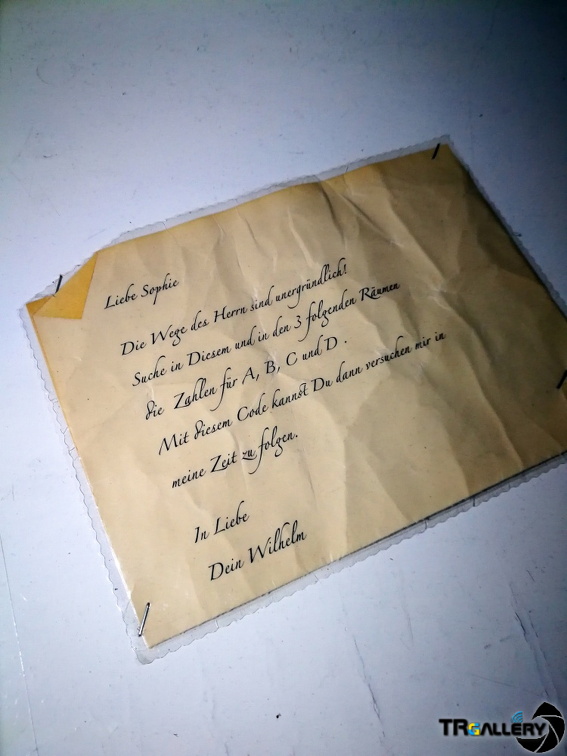 Liebe Sophie
Die Wege des Herrn sind unergründlich!
Suche in Diesem und in den 3 folgenden Räumen
die Zahlen für A, B, C und D .
Mit diesem Code kannst Du dann versuchen mir in
meine Zeit zu folgen.
In Liebe
Dein Wilhelm
TRgALLERY